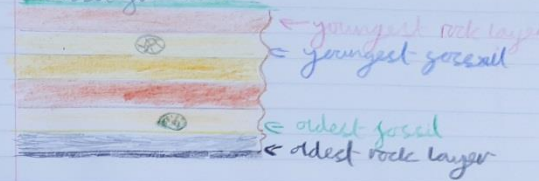 ← youngest rock laye
← youngest fossil
← oldest fossil
← oldest rock layer